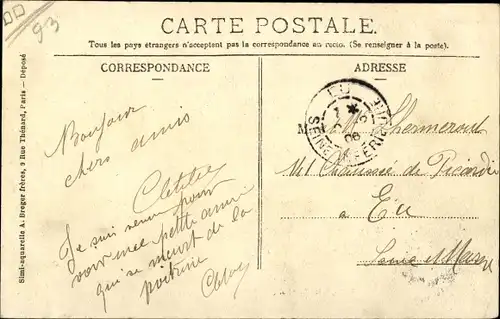 93
CARTE POSTALE.
Tous les pays étrangers n'acceptent pas la correspondance au recto. (Se renseigner à la poste).
CORRESPONDANCE
ADRESSE
Simi-aquarelle A. Breger frères, 9 Rue Thénard, Paris — Déposé
Bonjour
chers amis
Clotilde
Je suis venu pour
voir une petite amie
qui se meurt de la
poitrine
EU
SEINE INFÉRIEURE
06
M
141 Chaussée de Picardie
a
Eu
Seine et